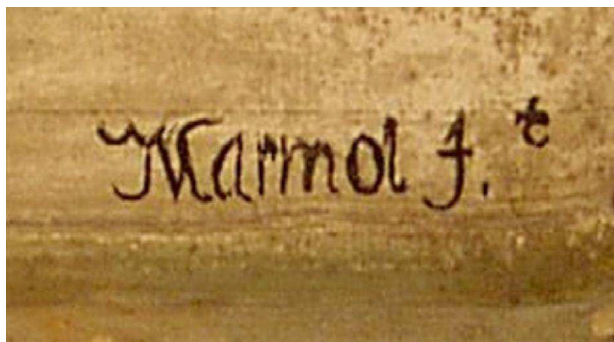 Marmol f. te